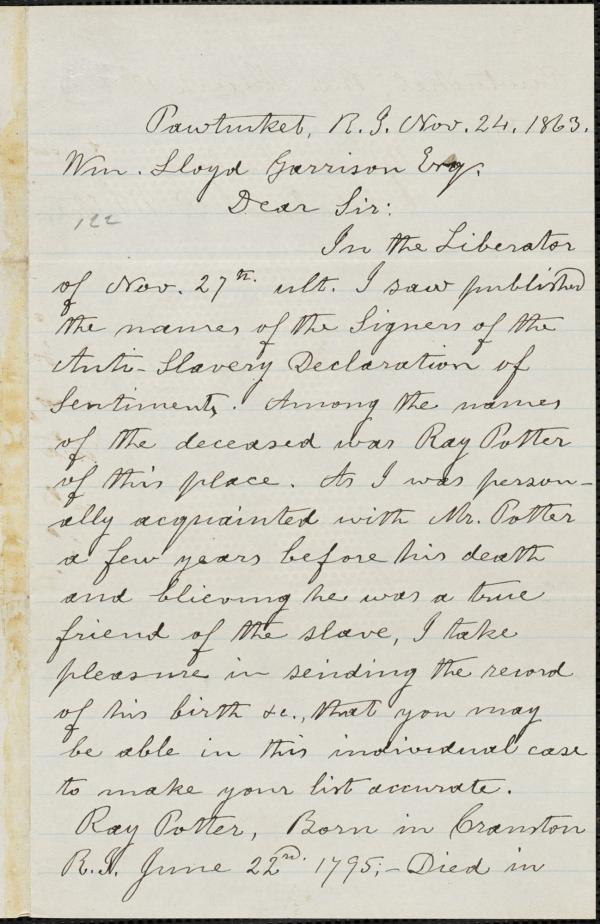 Pawtucket, R.I. Nov. 24. 1863.
Wm. Lloyd Garrison Esq.
Dear Sir:
122
In the Liberator
of Nov. 27th. ult. I saw published
the names of the Signers of the
Anti-Slavery Declaration of
Sentiments. Among the names
of the deceased was Ray Potter
of this place. As I was person-
ally acquainted with Mr. Potter
a few years before his death
and blieving he was a true
friend of the slave, I take
pleasure in sending the record
of his birth &c., that you may
be able in this individual case
to make your list accurate.
Ray Potter, Born in Cranston
R.I. June 22nd. 1795;- Died in